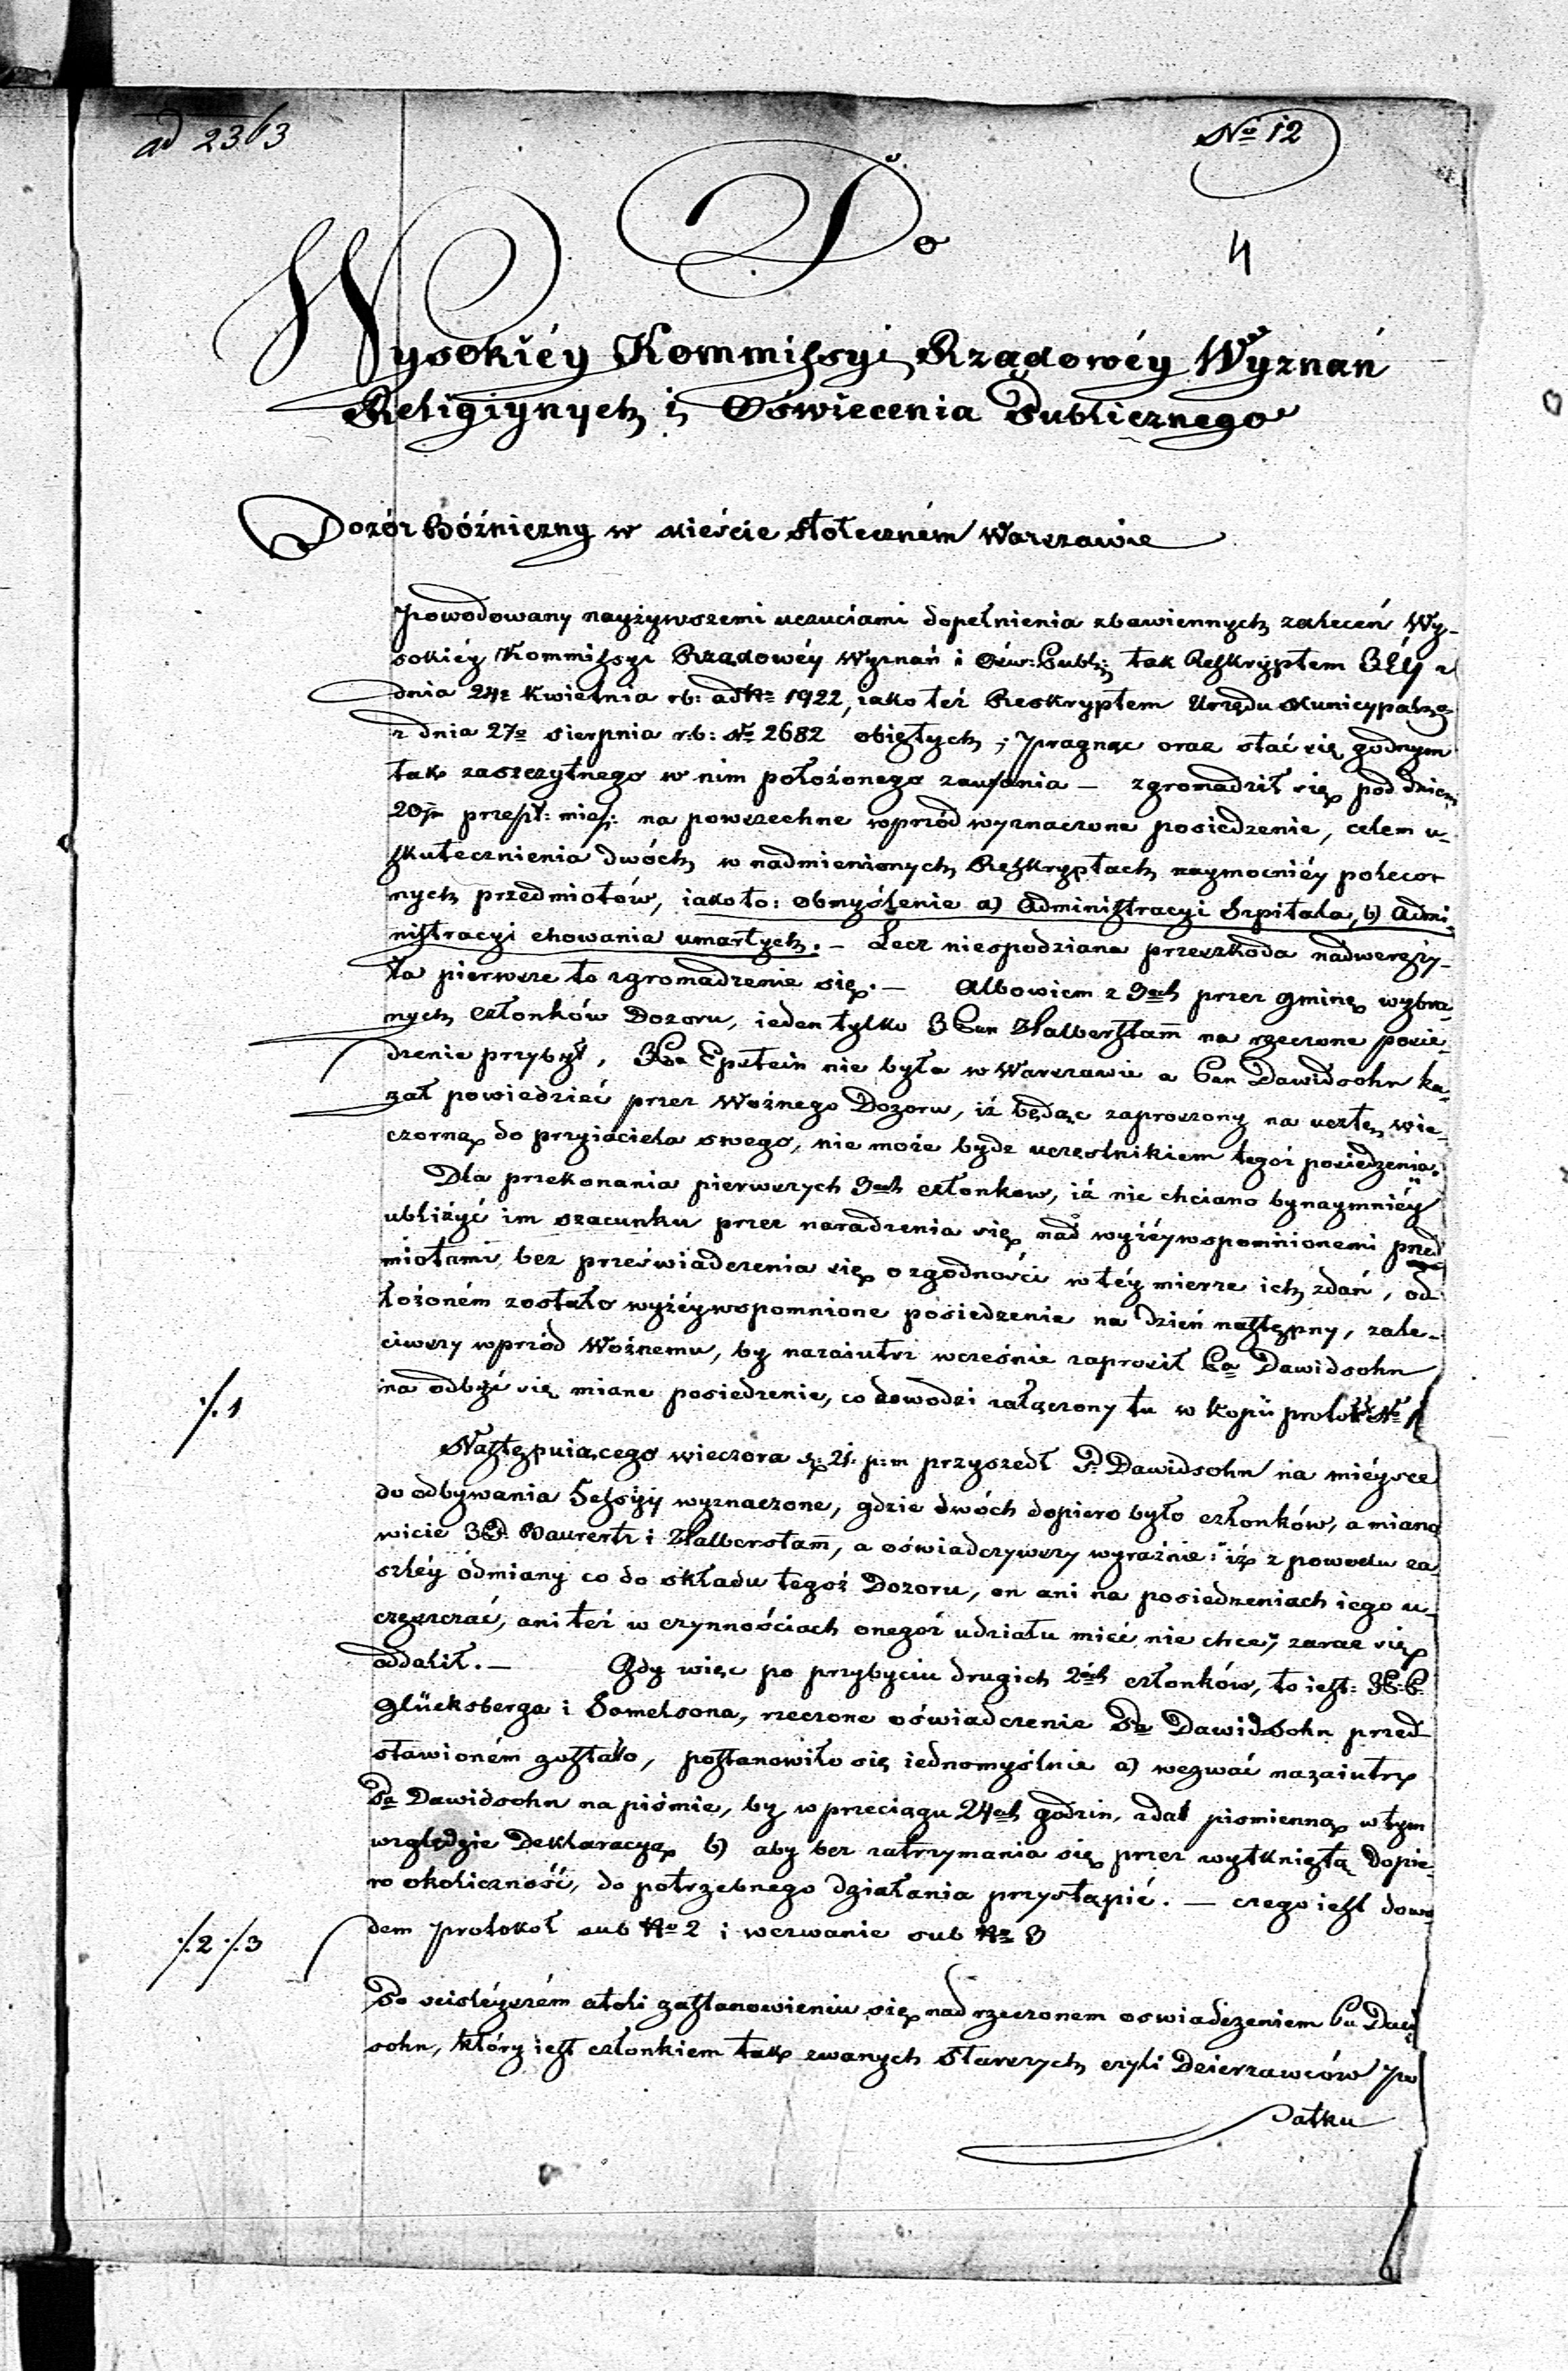 ad 2363
No 12
4
Do
Wysokiéy Kommissyi Rządowéy Wyznań
Religiynych i Oświecenia Publicznego
Dozór Bóźniczny w mieście stołeczném Warszawie
Powodowany nayżywszemi uczuciami dopełnienia zbawiennych zaleceń Wy-
sokiéy Kommissyi Rządowéy Wyznań i Ośw: Publ: tak Reskryptem z
dnia 24o Kwietnia rb: ad No 1922, iako też Reskryptem Urzędu Municypalng
z dnia 27o sierpnia r.b: No 2682 obiętych; pragnąc oraz stać się godnym
tak zaszczytnego w nim położonego zaufania — zgromadził się pod dniem
20m przeszł: mies: na powszechne wprzód wyznaczone posiedzenie, celem u-
skutecznienia dwóch w nadmienionych Reskryptach naymocniéy polecon
nych przedmiotów, iakoto: obmyślenie a) Administracyi Szpitala, b) Admi-
nistracyi chowania umarłych. — Lecz niespodziana przeszkoda nadweręży-
ła pierwsze to zgromadzenie się. — Albowiem z 3ech przez gminę wybra-
nych członków Dozoru, ieden tylko Pan Halberstam na rzeczone posie-
dzenie przybył, Epstein nie była w Warszawie a Pan Dawidsohn ka-
zał powiedzieć przez Woźnego Dozoru, iż będąc zaproszony na ucztę wie-
czorną do przyiaciela swego, nie może bydz uczestnikiem tegoż posiedzenia.
Dla przekonania pierwszych 3ech członkow, iż nie chciano bynaymniéy
ubliżyć im szacunku przez naradzenia się nad wyżéywspomnionemi przed
miotami bez przeświadczenia się o zgodności w téy mierze ich zdań, od
łożoném zostało wyżéywspomnione posiedzenie na dzień następny, zale-
ciwszy wprzód Woźnemu, by nazaiutrz wcześnie zaprosił Pa Dawidsohn
na odbyć się miane posiedzenie, co dowodzi załączony tu w kopii protok: No 1
./. 1
Następuiącego wieczora 21. p: m przyszedł P: Dawidsohn na miéysce
do odbywania Sessyy wyznaczone, gdzie dwóch dopiero było członków, a miano
wicie Baurertz i Halberstam, a oświadczywszy wyraźnie: "iż z powodu za
szłéy odmiany co do składu tegoż Dozoru, on ani na posiedzeniach iego u-
częszczać, ani też w czynnościach onegoż udziału mieć nie chce", zaraz się
oddalił. — Gdy więc po przybyciu drugich 2óch członków, to iest:
Glücksberga i Samelsona, rzeczone oświadczenie Pa Dawidsohn przed-
stawioném zostało, postanowiło się iednomyślnie a) wezwać nazaiutrz
Pa Dawidsohn na piśmie, by w przeciągu 24ech godzin, zdał pismienną w tym
względzie Deklaracyę b) aby bez zatrzymania się przez wytkniętą dopie-
ro okoliczność, do potrzebnego działania przystąpić. — czego iest dowo-
dem protokoł sub No 2 i wezwanie sub No 3
./. 2 ./. 3
Po ścisléyszém atoli zastanowieniu się nad rzeczonem oswiadczeniem Pa Dawid
sohn, który iest członkiem tak zwanych Starszych czyli Dzierzawców Po
datku